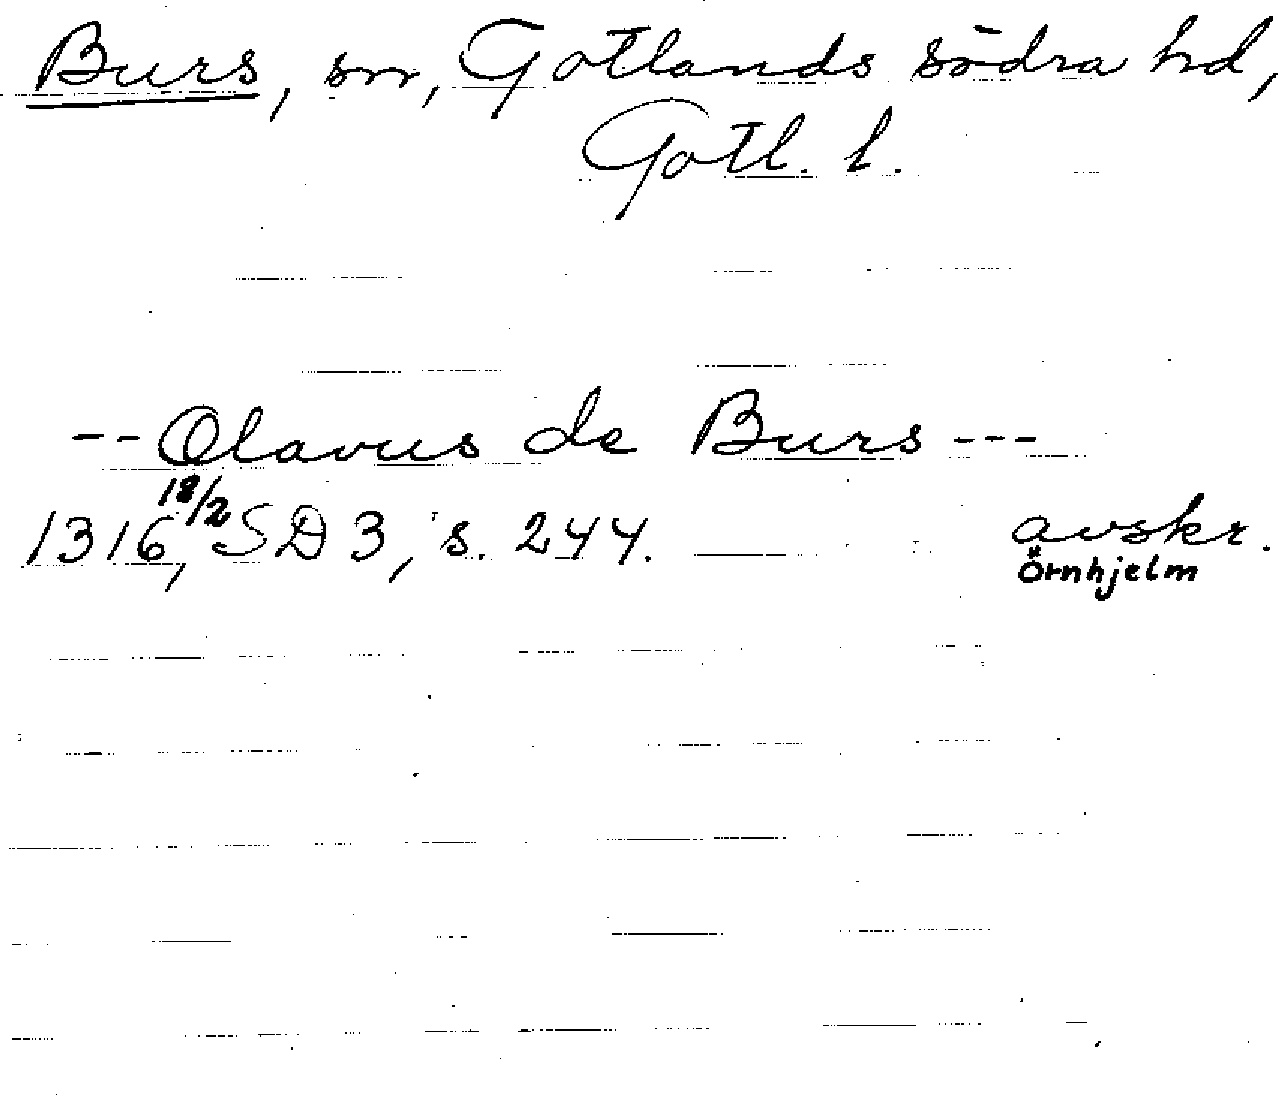 Burs, sn, Gotlands södra hd,
Gotl. l.
-- Olavus de Burs ---
1316 18/2, SD 3, s. 244. avskr.
Örnhjelm